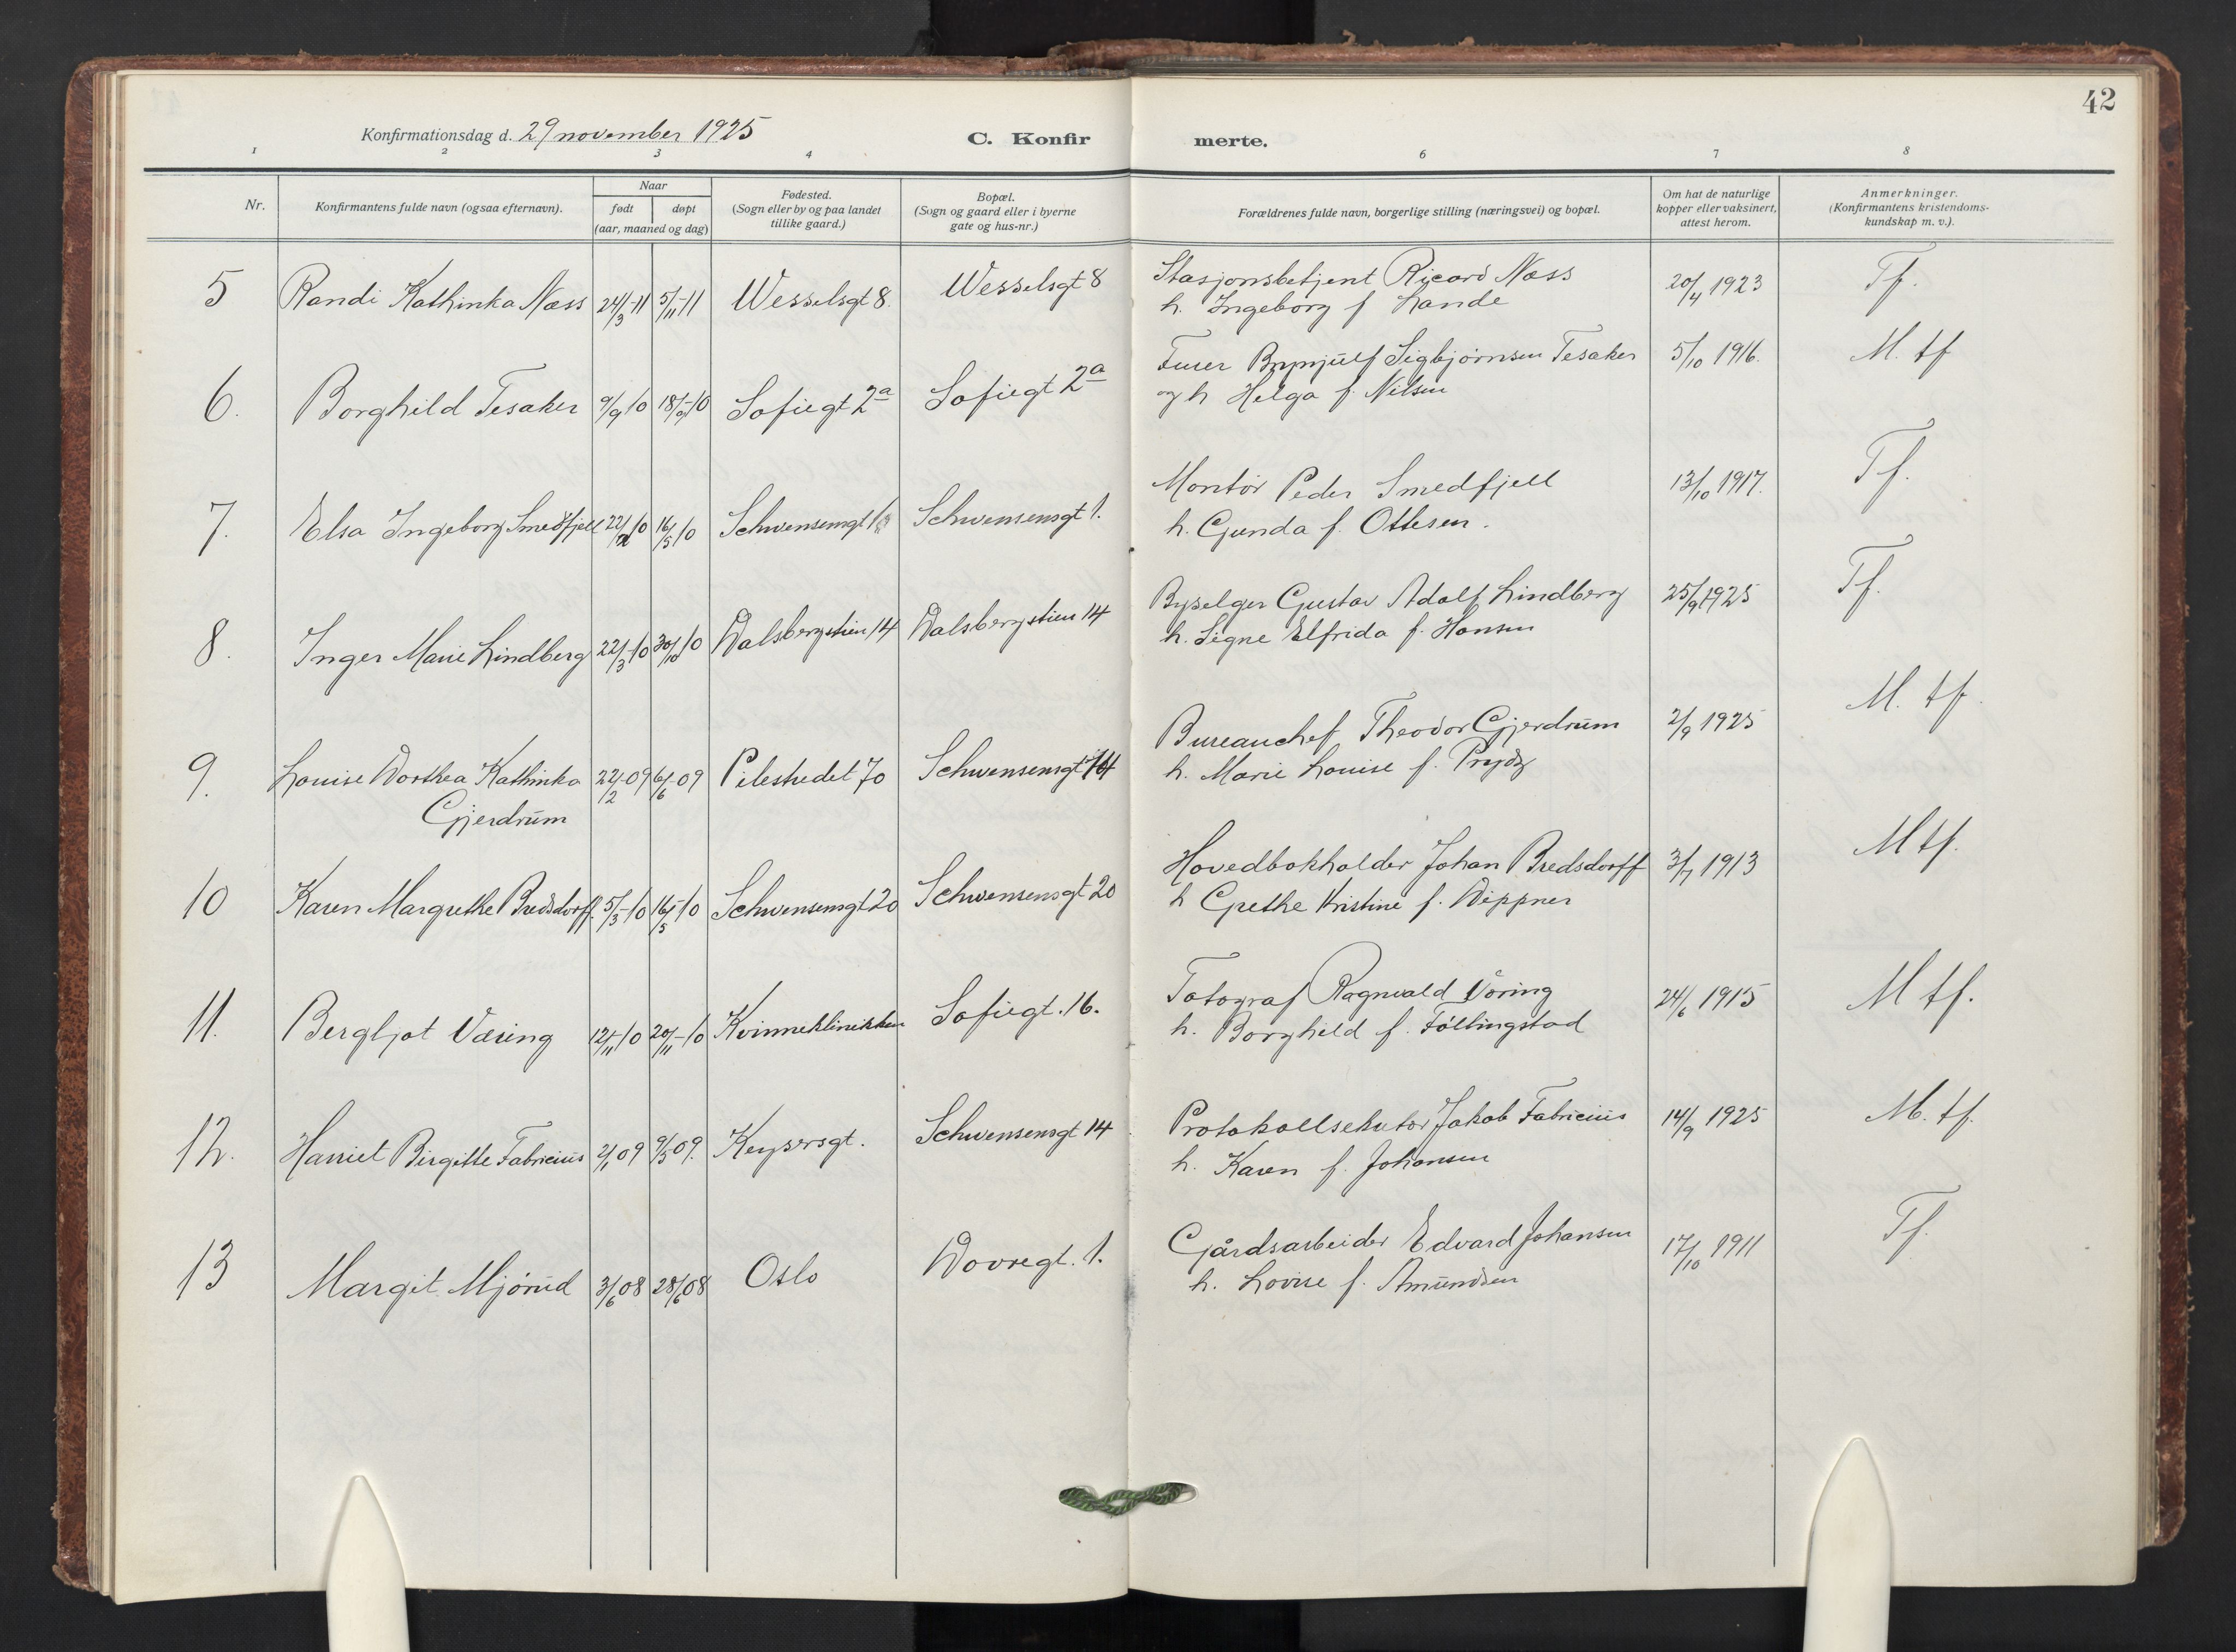 42
Konfirmationsdag d. 29 november 1925
C. Konfir merte.
1 2 3 4 6 7 8
Nr.
Konfirmantens fulde navn (ogsaa efternavn).
Naar
født døpt
(aar, maaned og dag)
Fødested.
(Sogn eller by og paa landet
tillike gaard.)
Bopæl.
(Sogn og gaard eller i byerne
gate og hus-nr.)
Forældrenes fulde navn, borgerlige stilling (næringsvei) og bopæl.
Om hat de naturlige
kopper eller vaksinert,
attest herom.
Anmerkninger.
(Konfirmantens kristendoms-
kundskap m. v.).
5 Randi Kathinka Næss 24/3-11 5/11-11 Wesselsgt 8. Wesselsgt 8 Stasjonsbetjent Ricard Næss 20/4 1923 Tf.
h. Ingeborg f Lande
6. Borghild Tesaker 9/9 10 18/9-10 Sofiegt 2a Sofiegt 2a Furer Brynjulf Sigbjørnsen Tesaker 5/10 1916. M. tf
og h Helga f. Nilsen
7. Elsa Ingeborg Smedfjell 22/ 10 16/5 10 Schwensensgt 1 Schwensensgt 1. Montør Peder Smedfjell 13/10 1917. Tf.
h. Gunda f. Ottesen.
8. Inger Marie Lindberg 22/3-10 30/10 10 Dalsbergstien 14 Dalsbergstien 14 Byselger Gustav Adolf Lindberg 25/9 1925 Tf.
h. Signe Elfrida f. Hansen
9. Louise Dorthea Kathinka 22/2-09 6/6-09 Pilestredet 70 Schwensensgt 14 Bureauchef Theodor Gjerdrum 2/9 1925 M. tf.
Gjerdrum
h. Marie Louise f. Prydz
10 Karen Margrethe Bredsdorff. 5/3-10 16/5-10 Schwensensgt 20 Schwensensgt 20 Hovedbokholder Johan Bredsdorff 3/7 1913 M tf.
h Grethe Kristine f. Dippner
11. Bergljot Væring 12/11-10 20/11-10 Kvinneklinikken Sofiegt. 16. Fotograf Ragnvald Væring 24/6 1915 M tf.
h. Borghild f. Føllingstad
12. Harriet Birgitte Fabricius 2/1 09 9/5 09. Keysersgt. Schwensensgt 14 Protokollsekutor Jakob Fabricius 14/9 1925 M. tf.
h. Karen f. Johansen
13 Margit Mjørud 3/6 08 28/6 08 Oslo Dovregt. 1. Gårdsarbeider Edvard Johansen 17/10 1911 Tf.
h. Lovise f. Amundsen